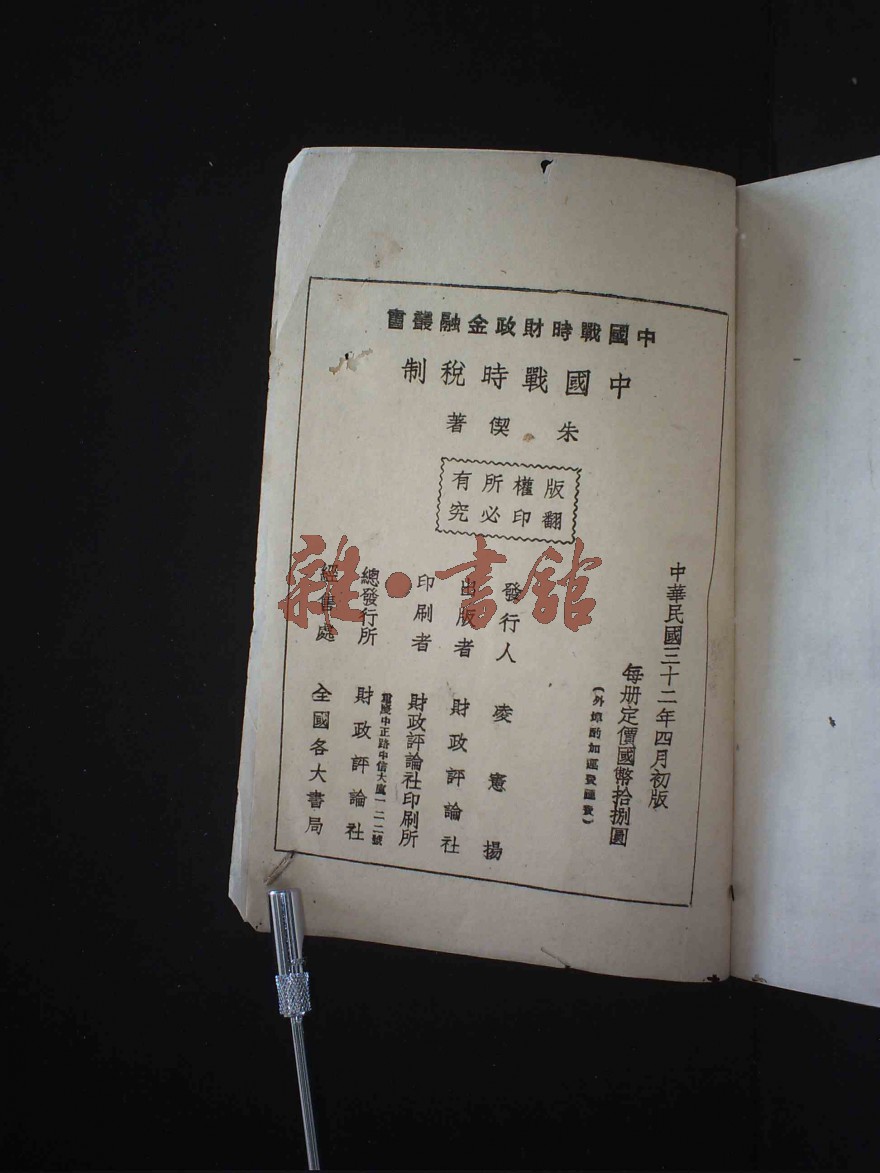 中國戰時財政金融叢書
中國戰時稅制
朱偰著
版權所有
翻印必究
中華民國三十二年四月初版
每册定價國幣拾捌圓
(外埠酌加運費匯費)
發行人 凌憲揚
出版者 財政評論社
印刷者 財政評論社印刷所
重慶中正路中信大廈一二二號
總發行所 財政評論社
經售處 全國各大書局
雜·書館